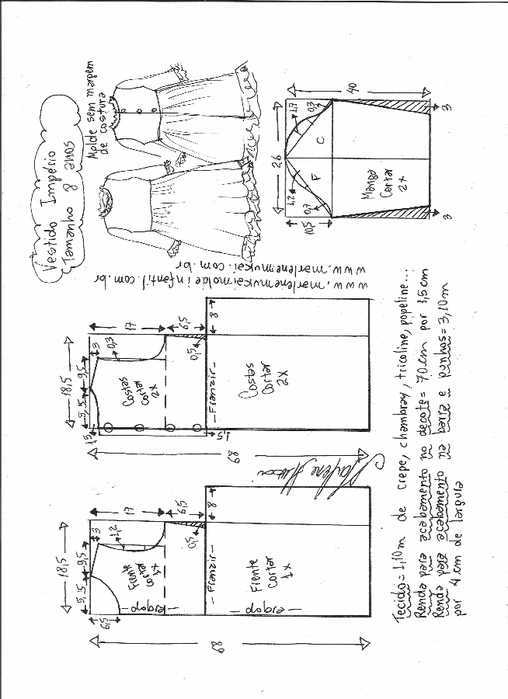 Vestido Império
Tamanho 8 anos
Molde sem margem
de costura
www.marlenemukaimoldeinfantil.com.br
www.marlenemukai.com.br
40
26
1,7
0,3
C
F
1,2
0,7
10,5
Manga
Cortar
2x
3
3
18,5
5,5
9,5
3
17
6,5
0,3
0,5
8
1,5
1,5
68
Costas
Cortar
2x
Franzir
Costas
Cortar
2x
18,5
5,5
9,5
3
17
6,5
1,2
0,5
8
6,5
68
Frente
Cortar
1x
dobra
Franzir
Frente
Cortar
1x
dobra
Marlene Mukai
Tecido = 1,10m de crepe, chambray, tricoline, popeline...
Renda para acabamento no decote = 70cm por 1,5cm
Renda para acabamento na barra e punhos = 3,10m
por 4cm de largura